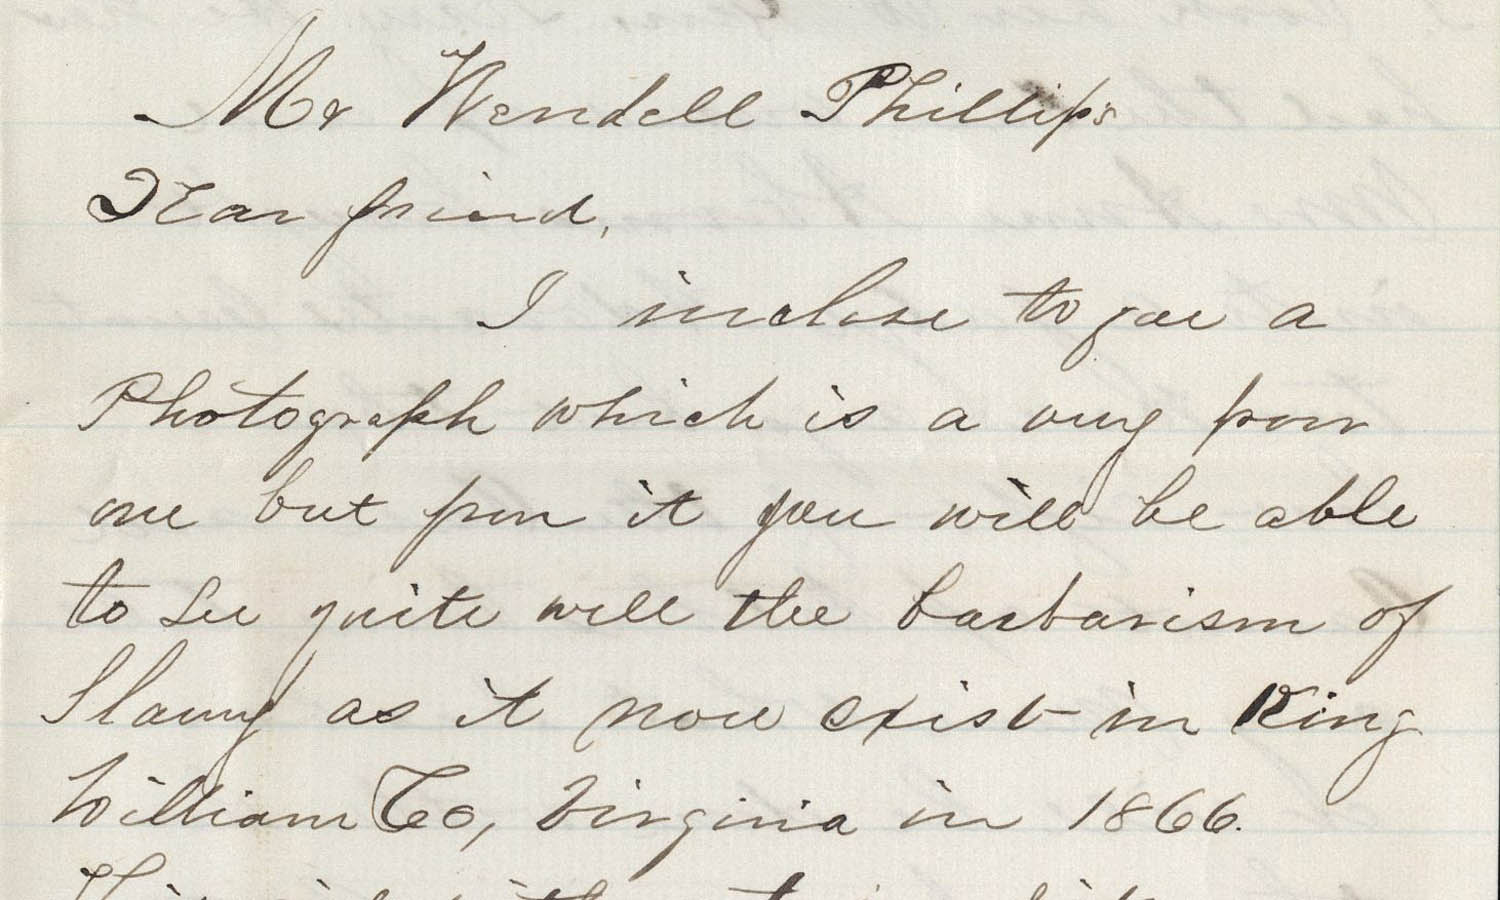 Mr Wendell Phillips
Dear friend,
I inclose to you a
Photograph which is a very poor
one but from it you will be able
to see quite well the barbarism of
Slavery as it now exist in King
William Co, Virginia in 1866.